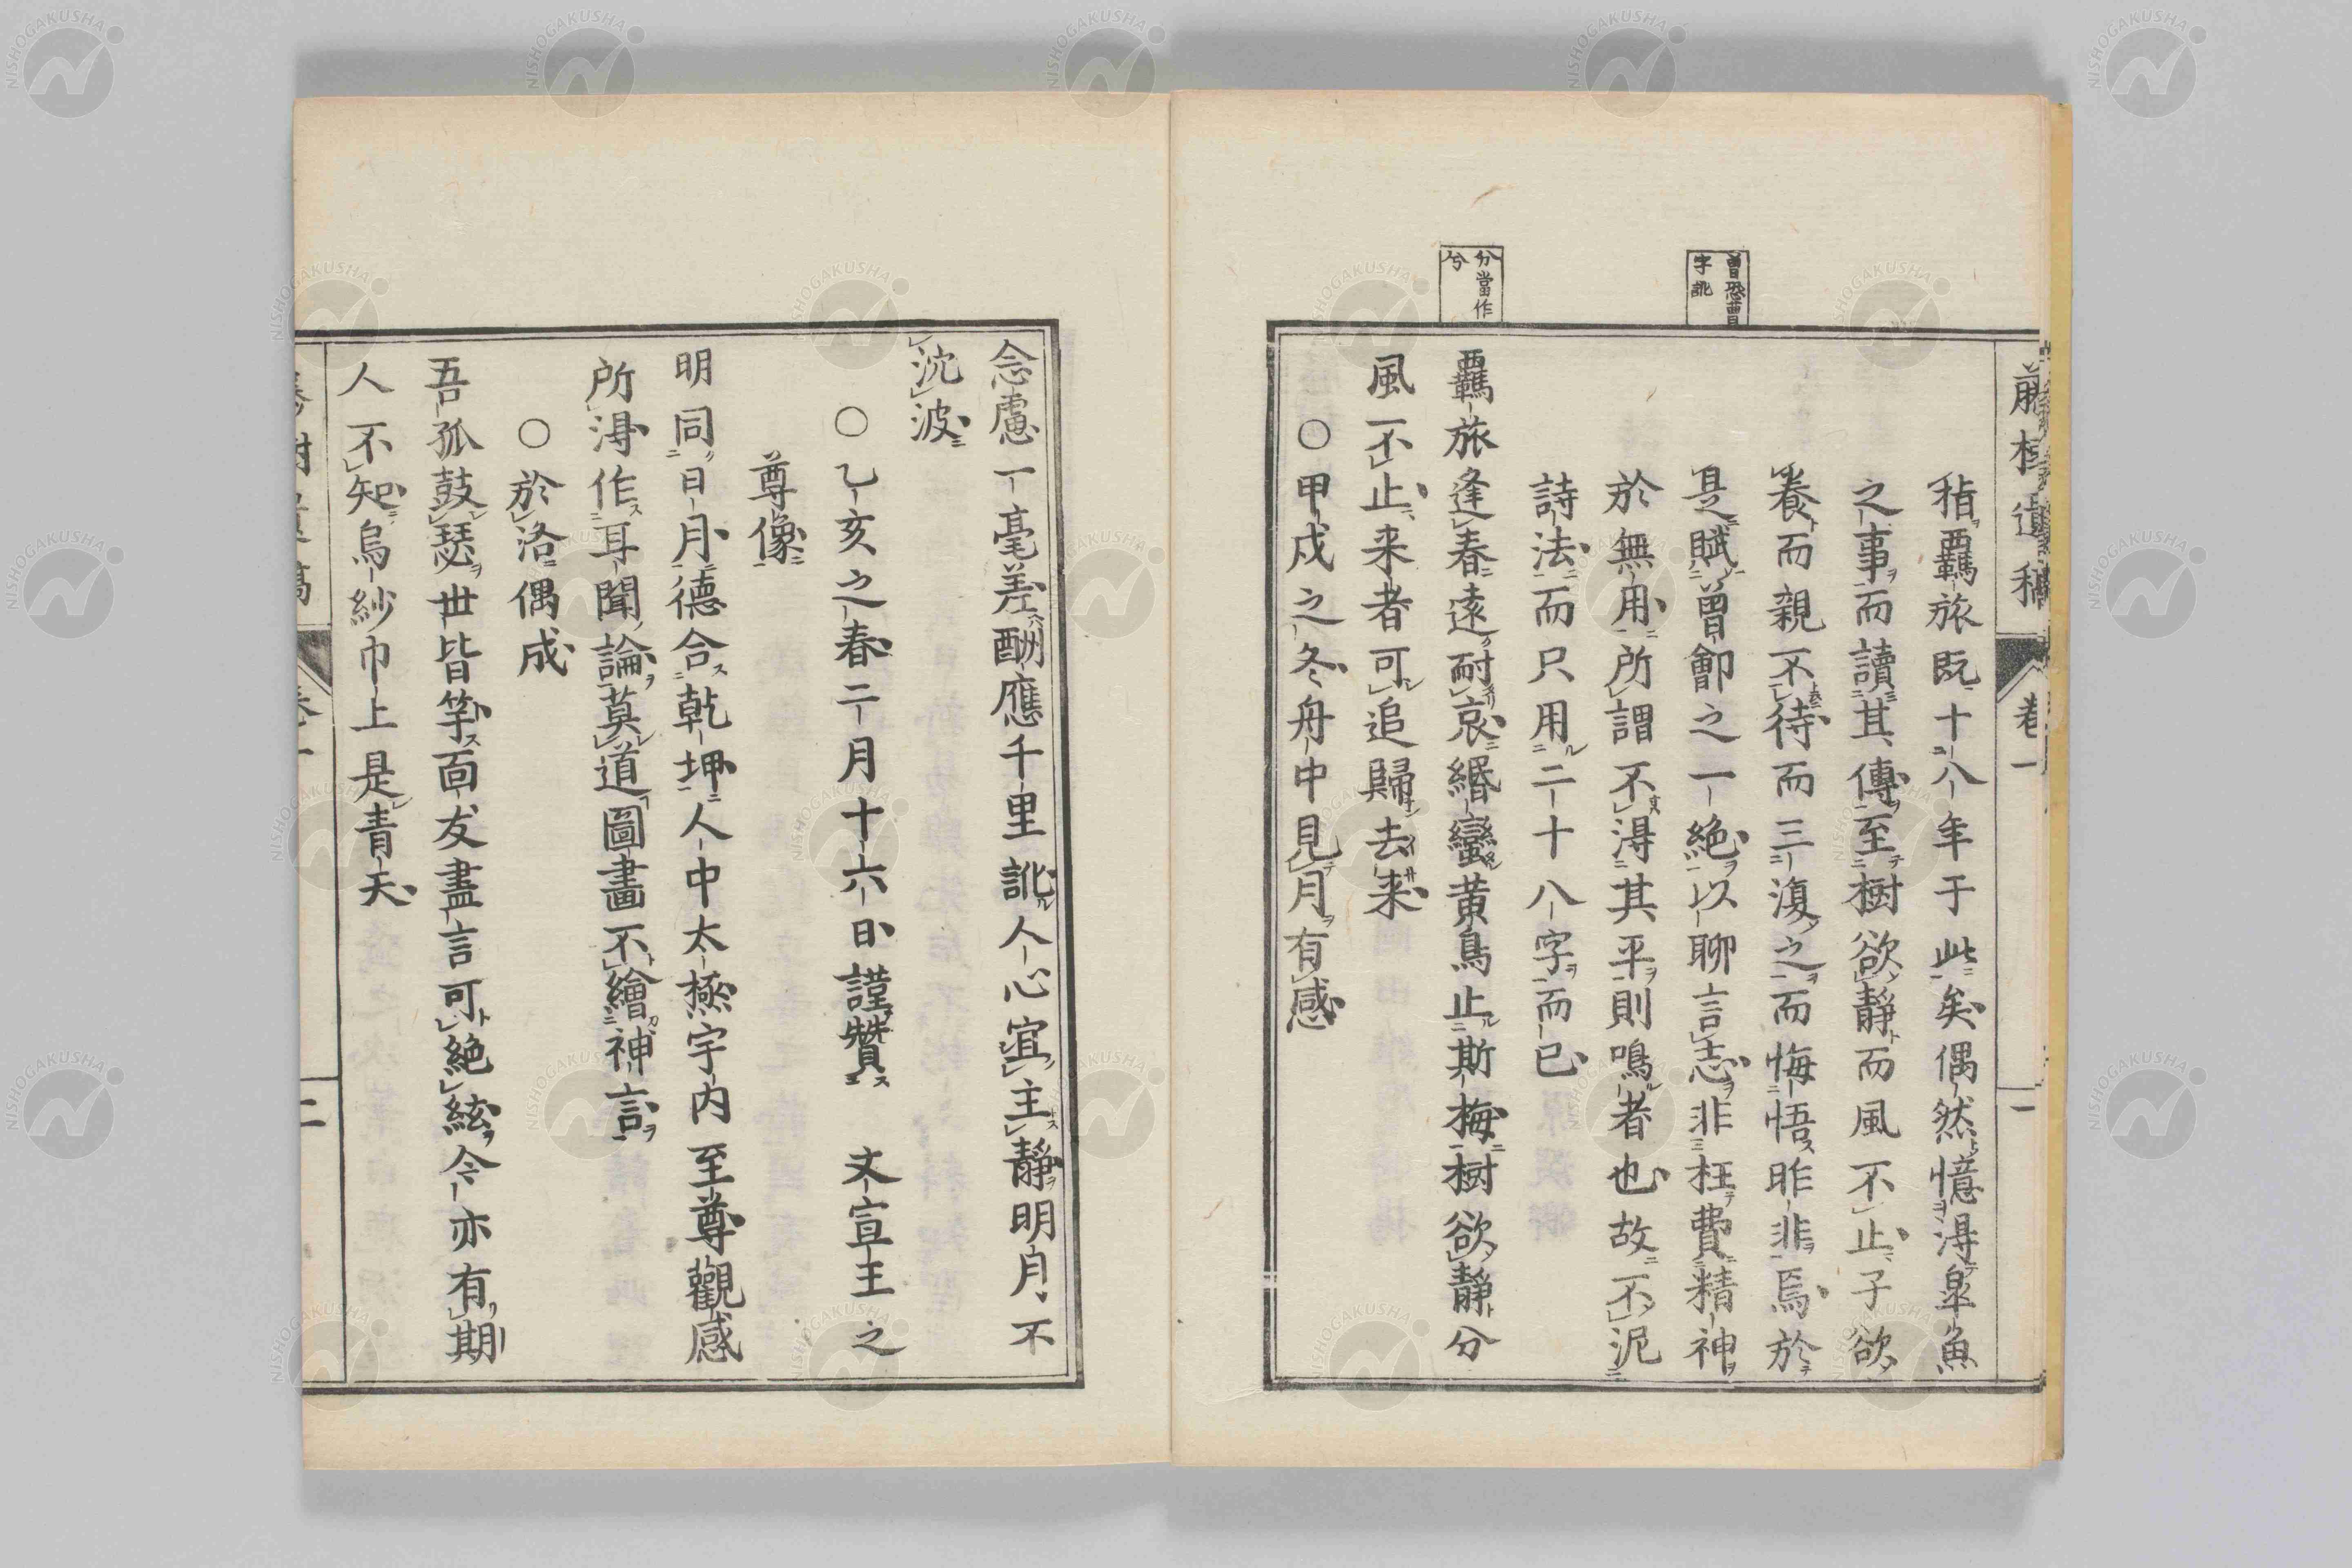 藤樹遺稿 卷一 一
稽羈旅既十八年于此矣偶然憶淂皐魚
之事而讀其傳至樹欲靜而風不止子欲
養而親不待而三復之而悔悟昨非焉於
是賦曾鄶之一絶以聊言志非枉費精神
於無用所謂不淂其平則鳴者也故不泥
詩法而只用二十八字而已
羈旅逢春遠耐哀緡蠻黄鳥止斯梅樹欲靜分
風不止来者可追歸去来
○甲戍之冬舟中見月有感
曾恐曹
字訛
分當作
兮
念慮一毫差酬應千里訛人心宜主靜明月不
沈波
○乙亥之春二月十六日謹贊 文宣王之
尊像
明同日月德合乾坤人中太極宇内至尊觀感
所淂作耳聞論莫道圖畫不繪神言
○於洛偶成
吾孤鼓瑟世皆竽面友盡言可絶絃今亦有期
人不知烏紗巾上是青天
卷一 二
NISHOGAKUSHA